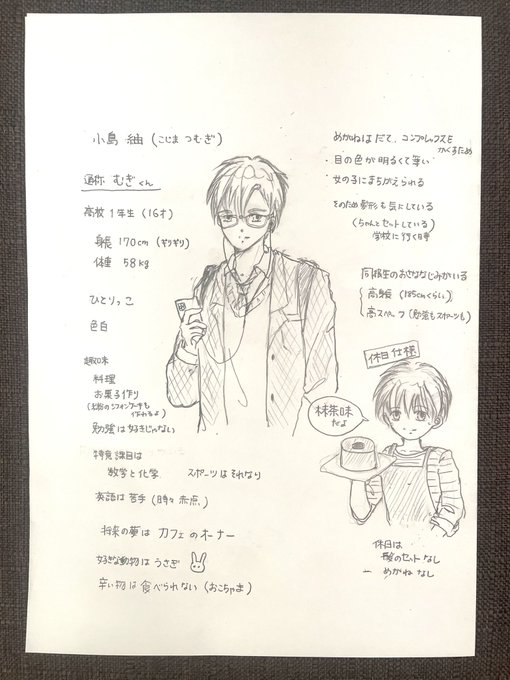 小島 紬 (こじま つむぎ)
通称 むぎくん
高校1年生 (16才)
身長 170cm (ギリギリ)
体重 58kg
ひとりっこ
色白
趣味
料理
お菓子作り
シフォンケーキも
作れるよ)
勉強は好きじゃない
得意課目は
数学と化学 スポーツはそれなり
英語は苦手 (時々赤点)
将来の夢は カフェのオーナー
好きな動物は うさぎ
辛い物は食べられない (おこちゃま)
めがねはだて、コンプレックスを
かくすため
・目の色が明るくて薄い
・女の子にまちがえられる
そのため髪形も気にしている
(ちゃんとセットしている)
学校に行く時
同級生のおさななじみがいる
高身長 (185cmくらい)
高スペック (勉強もスポーツも)
休日仕様
抹茶味
だよ
休日は
髪のセットなし
めがねなし